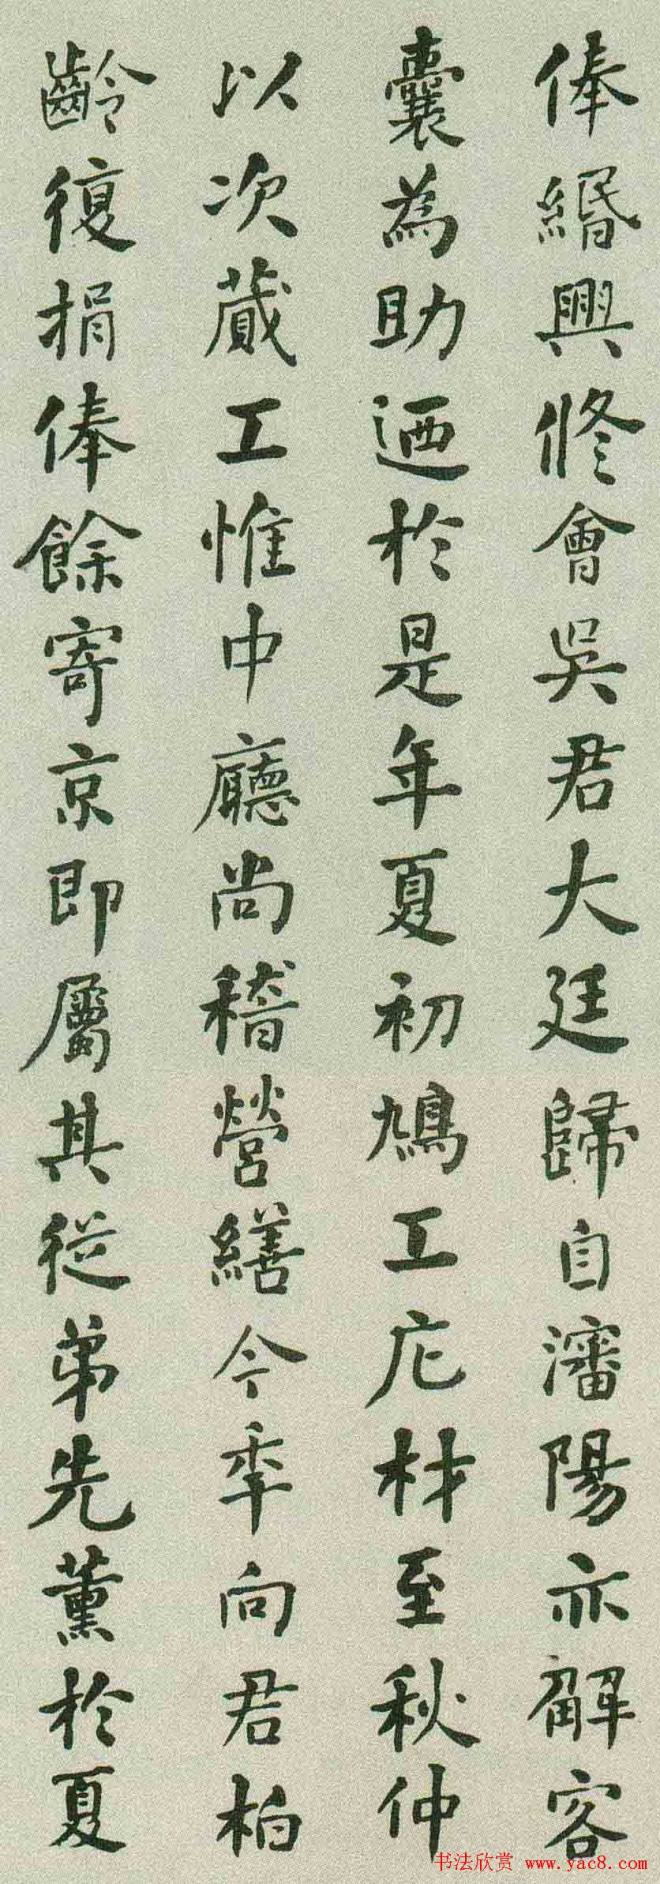 俸緡興脩會吳君大廷歸自瀋陽亦解客
囊為助迺於是年夏初鳩工庀材至秋仲
以次蕆工惟中廳尚稽營繕今季向君柏
齡復捐俸餘寄京即屬其從弟先薰於夏
书法欣赏 www.yac8.com